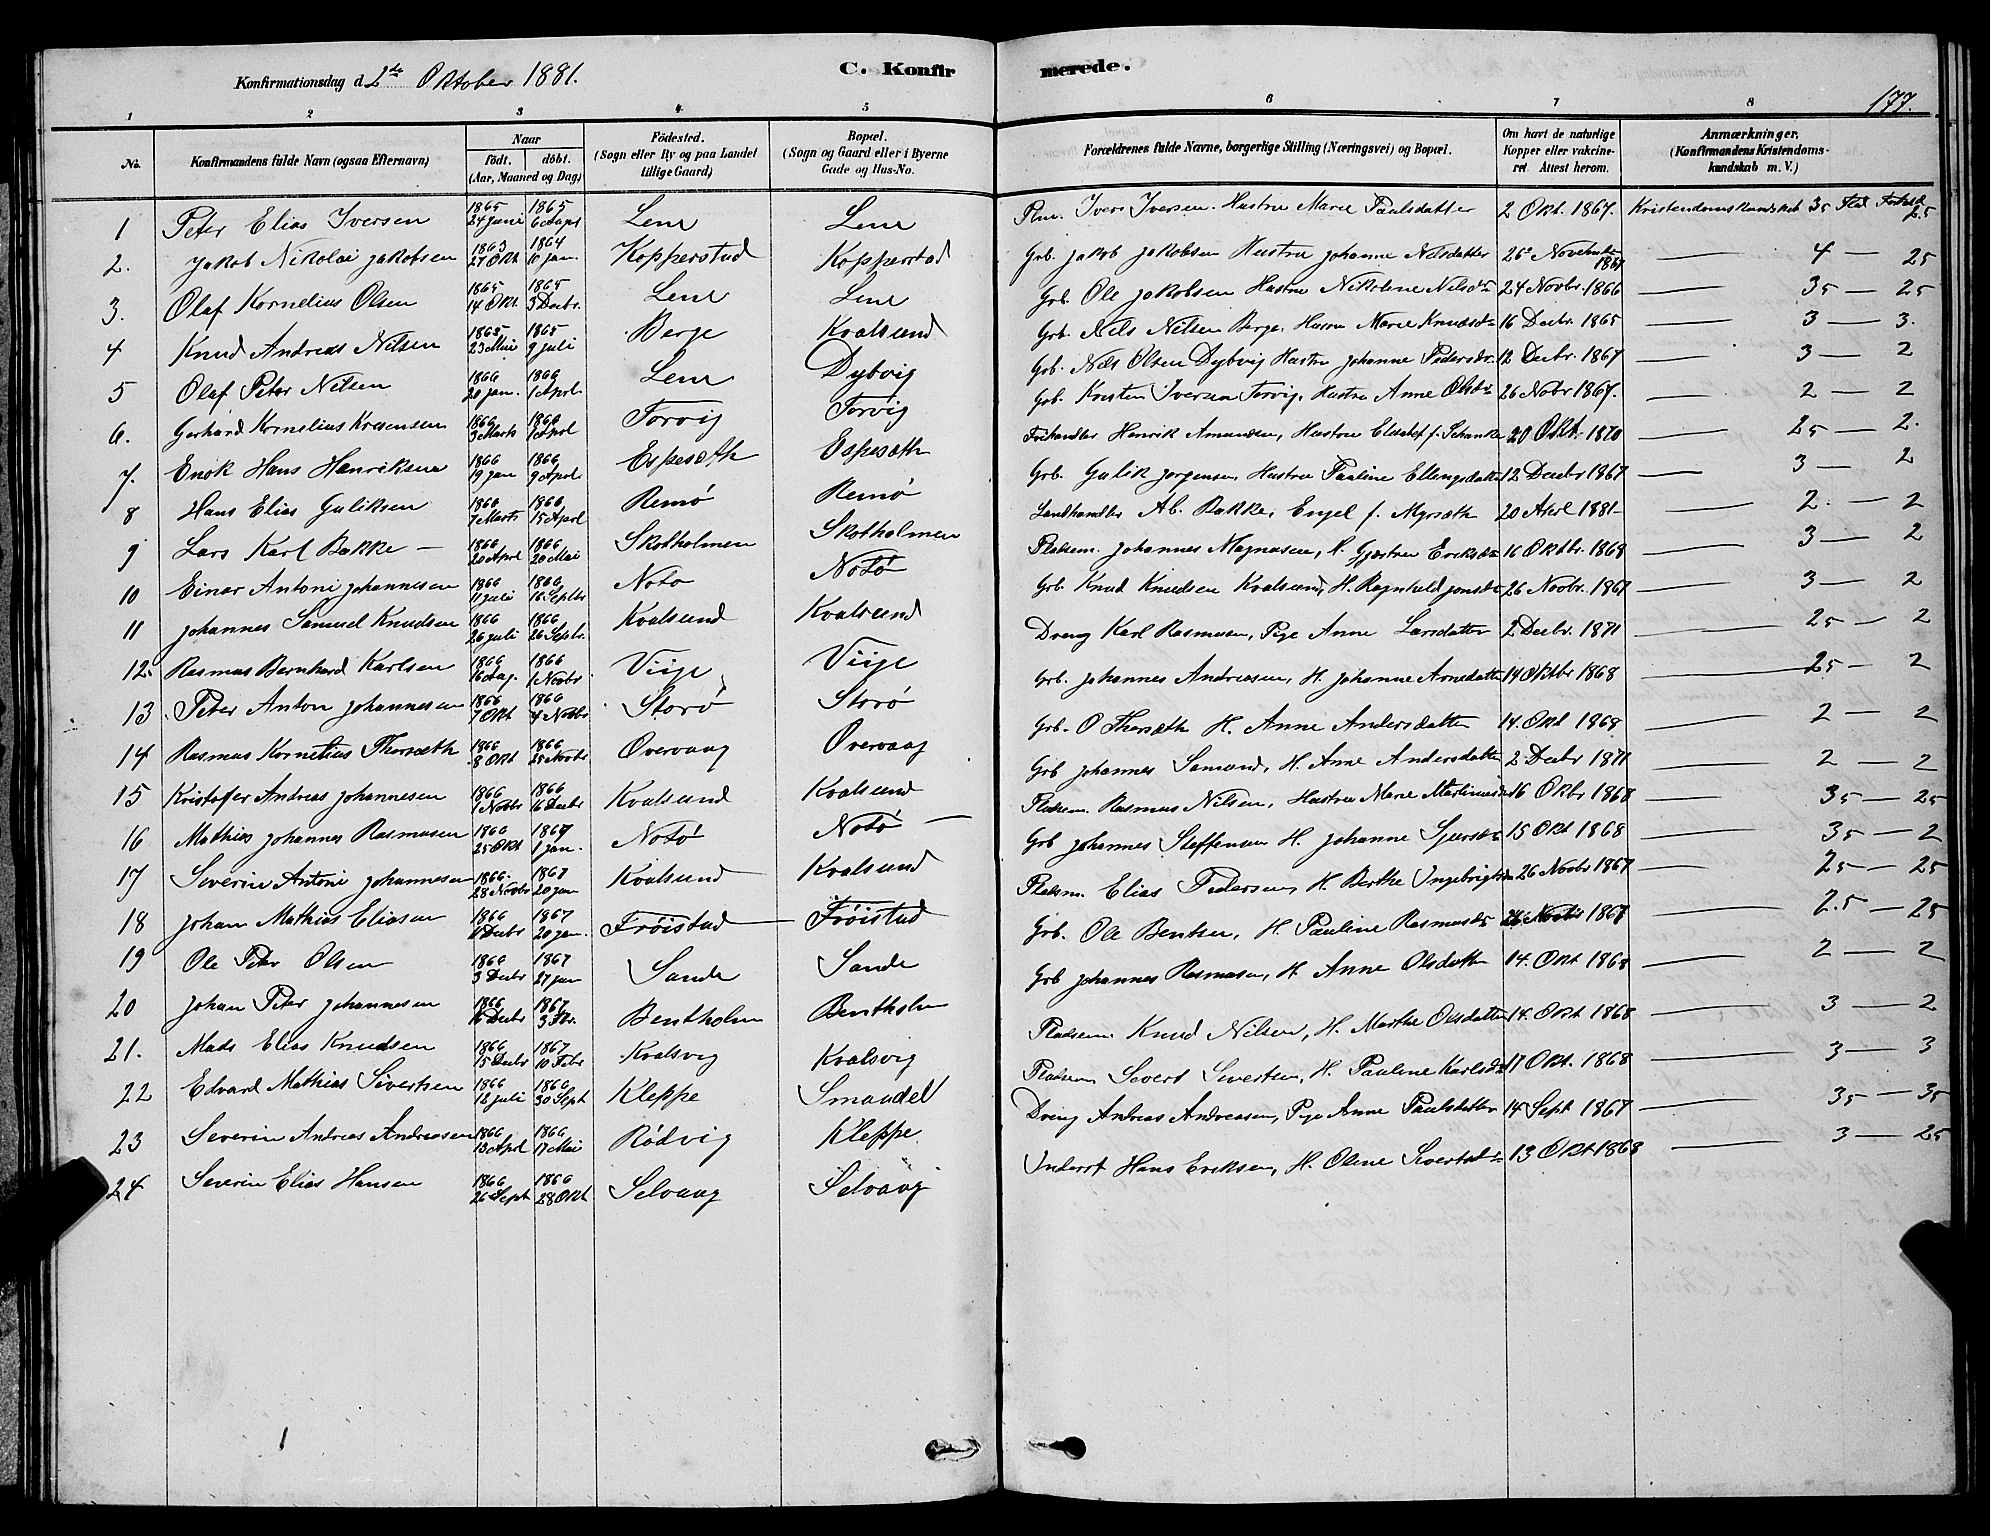 Konfirmationsdag d. 2de Oktober 1881. C. Konfirmerede. 177.
1 2 3 4 5 6 7 8
No. Konfirmandens fulde Navn (ogsaa Efternavn) Naar født. døbt. (Aar, Maaned og Dag) Födested. (Sogn eller By og paa Landet tillige Gaard) Bopæl. (Sogn og Gaard eller i Byerne Gade og Hus-No. Forældrenes fulde Navne, borgerlige Stilling (Næringsvei) og Bopæl. Om havt de naturlige Kopper eller vaccineret. Attest herom. Anmærkninger, (Konfirmandens Kristendomskundskab m. V.)
1 Peter Elias Iversen 1865 24 Juni 1865 6 Aug. Lene Lene Iver Iversen Hustru Marie Paulsdatter 2 Okt. 1867. Kristendomskundskab 35 Flid 2.5
2. Jakob Nikolai Jakobsen 1863 27 Okt 1864 10 Jan. Kopperstad Kopperstad Grb. Jakob Jakobsen Hustru Johanne Nilsdatter 26 November 1867 — 4 — 25
3. Olaf Kornelius Olsen 1865 14 Okt 1865 3 Decbr. Lene Lene Grb. Ole Jakobsen Hustru Nikoline Nilsdr 24 Novbr. 1866 — 35 — 25
4 Knud Andreas Nilsen 1865 23 Mai 1865 9 Juli Berge Kvalsund Grb. Nils Nilsen Berge. Hustru Marie Knudsdr 16 Decbr. 1865 — 3 — 3.
5 Olaf Peter Nilsen 1866 20 Jan. 1866 1 April Lene Dybvig Grb. Nils Olsen Dybvig Hustru Johanne Pedersdr. 12 Decbr. 1867 — 3 — 2
6. Gerhard Kornelius 1866 3 Marts 1866 1 April Torvig Torvig Grb. Kristen Iversen Torvig. Hustru Anne Olsdr 26 Nobr 1867. — 2 — 2
7. Enok Hans Henriksen 1866 19 Jan 1866 9 April Espesæth Espesæth Frihandler Henrik Amundsen, Hustru f. Schanke 20 Okt. 1870 — 25 — 2.
8 Hans Elias Guliksen 1866 7 Marts 1866 15 April Remö Remö Grb. Gulik Jørgensen Hustru Pauline Ellingsdatter 12 Decbr 1867 — 3 — 2
9 Lars Karl Bakke — 1866 20 April 1866 20 Mai Skotholmen Skotholmen Landhandler Ab. Bakke, Engel f. Myrsæth 20 1881 — 2. — 2
10 Einar Antoni Johannesen 1866 11 Juli 1866 16 Septbr Notö Notö Pladsem. Johannes Magnusen, H. Gjertru Eriksdr 16 Oktbr. 1868 — 3 — 2
11 Johannes Samuel Knudsen 1866 26 Juli 1866 26 Septr. Kvalsund Kvalsund Grb. Knud Knudsen Kvalsund, H. Ragnhild Jonsdr 26 Novbr. 1867 — 3 — 2
12. Rasmus Bernhard Karlsen 1866 16 Aug. 1866 1 Novbr. Viige Viige Dreng Karl Rasmusen, Pige Anne Larsdatter 2 Decbr. 1871 — 25 — 2
13 Peter Anton Johannesen 1866 7 Okt 1866 4 Novbr. Storö Storö Grb. Johannes Andreasen, H. Johanne Arnesdatter 14 Oktbr 1868 — 25 — 2
14 Rasmus Kornelius Thorsæth 1866 8 Okt 1866 25 Novbr Overvaag Overvaag Grb. O Thorsæth H. Anne Andersdatter 14. Okt 1868. — 2 — 2
15 Kristoffer Andreas Johannesen 1866 7 Novbr 1866 16 Decbr Kvalsund Kvalsund Grb Johannes H. Anne Andersdatter 2 Decbr 1871 — 2 — 2
16 Mathias Johannes Rasmusen 1866 25 Okt 1867 1 Jan. Notö Notö — Pladsem. Rasmus Nilsen, Hustru Marie 16 Okbr 1868 — 35 — 25
17 Severin Antoni Johannesen 1866. 28 Novbr 1867 20 Jan Kvalsund Kvalsund Grb Johannes Steffensen H. Johanne 15 Okt 1868 — 35 — 2
18 Johan Mathias Eliasen 1866 11 Decbr 1867 20 Jan. Fröistad Fröistad Pladsem. Elias Pedersen, H. Berthe 26 Novbr 1867 — 25 — 25
19 Ole Peter Olsen 1866 3 Decbr 1867 27 Jan Sande Sande Grb. Ole Bentsen, H. Pauline Rasmusdr 26 Novbr 1867 — 2.5 — 25
20 Johan Peter Johannesen 1866 16 Decbr 1867 3 Fbr. Bentholm Bentholm Grb Johannes Rasmusen, H. Anne Olsdatter 14. Okt 1868 — 2 — 2
21. Mads Elias Knudsen 1866 15 Decbr 1867 10 Febr Kvalsvig Kvalsvig Pladsem. Knud Nilsen, H. Marthe Olsdatter 14. Okt 1868 — 3 — 2
22 Edvard Mathias Sivertsen 1866 12 Juli 1866 30 Sept Kleppe Smaadel Pladsem Sivert Sivertsen, H. Pauline Karlsdr 17 Okt. 1868 — 3 — 3
23 Severin Andreas Andreasen 1866 13 April 1866 17 Mai Rödvig Kleppe Dreng Andreas Andreassen, Pige Anne Paulsdatter 14 Sept 1867 — 35 — 35
24 Severin Elias Hansen 1866 26 Sept 1866 28 Okt Selvaag Selvaag Hans Eriksen, H. Oline Sivertsdr 13 Okt 1868 — 3 — 25